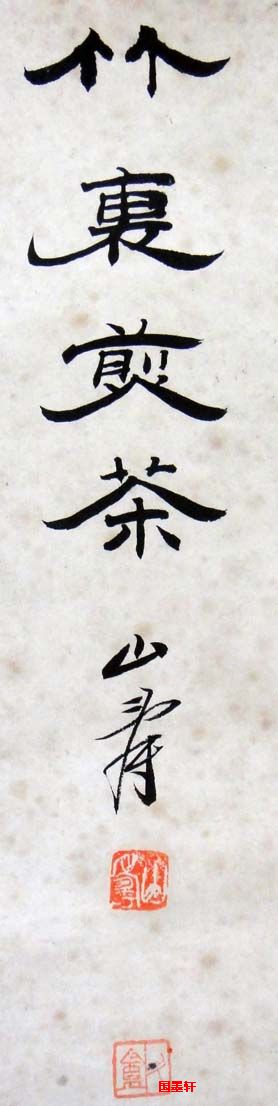 竹裏煎茶
山
国墨轩